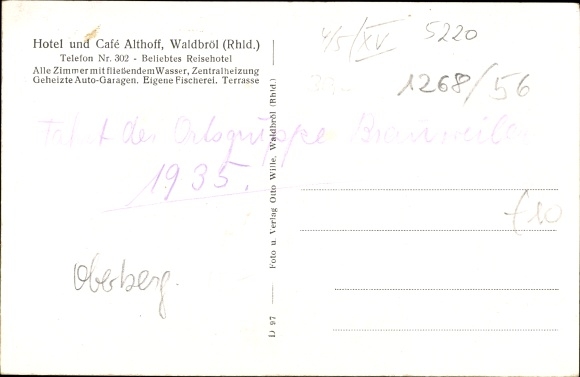 Hotel und Café Althoff, Waldbröl (Rhld.)
Telefon Nr. 302 - Beliebtes Reisehotel
Alle Zimmer mit fließendem Wasser, Zentralheizung
Geheizte Auto-Garagen. Eigene Fischerei. Terrasse
4/5/XV 5220
1268/56
Fahrt der Ortsgruppe Brauweiler
1935.
£10
Oberberg.
D 97 Foto u. Verlag Otto Wille, Waldbröl (Rhld.)